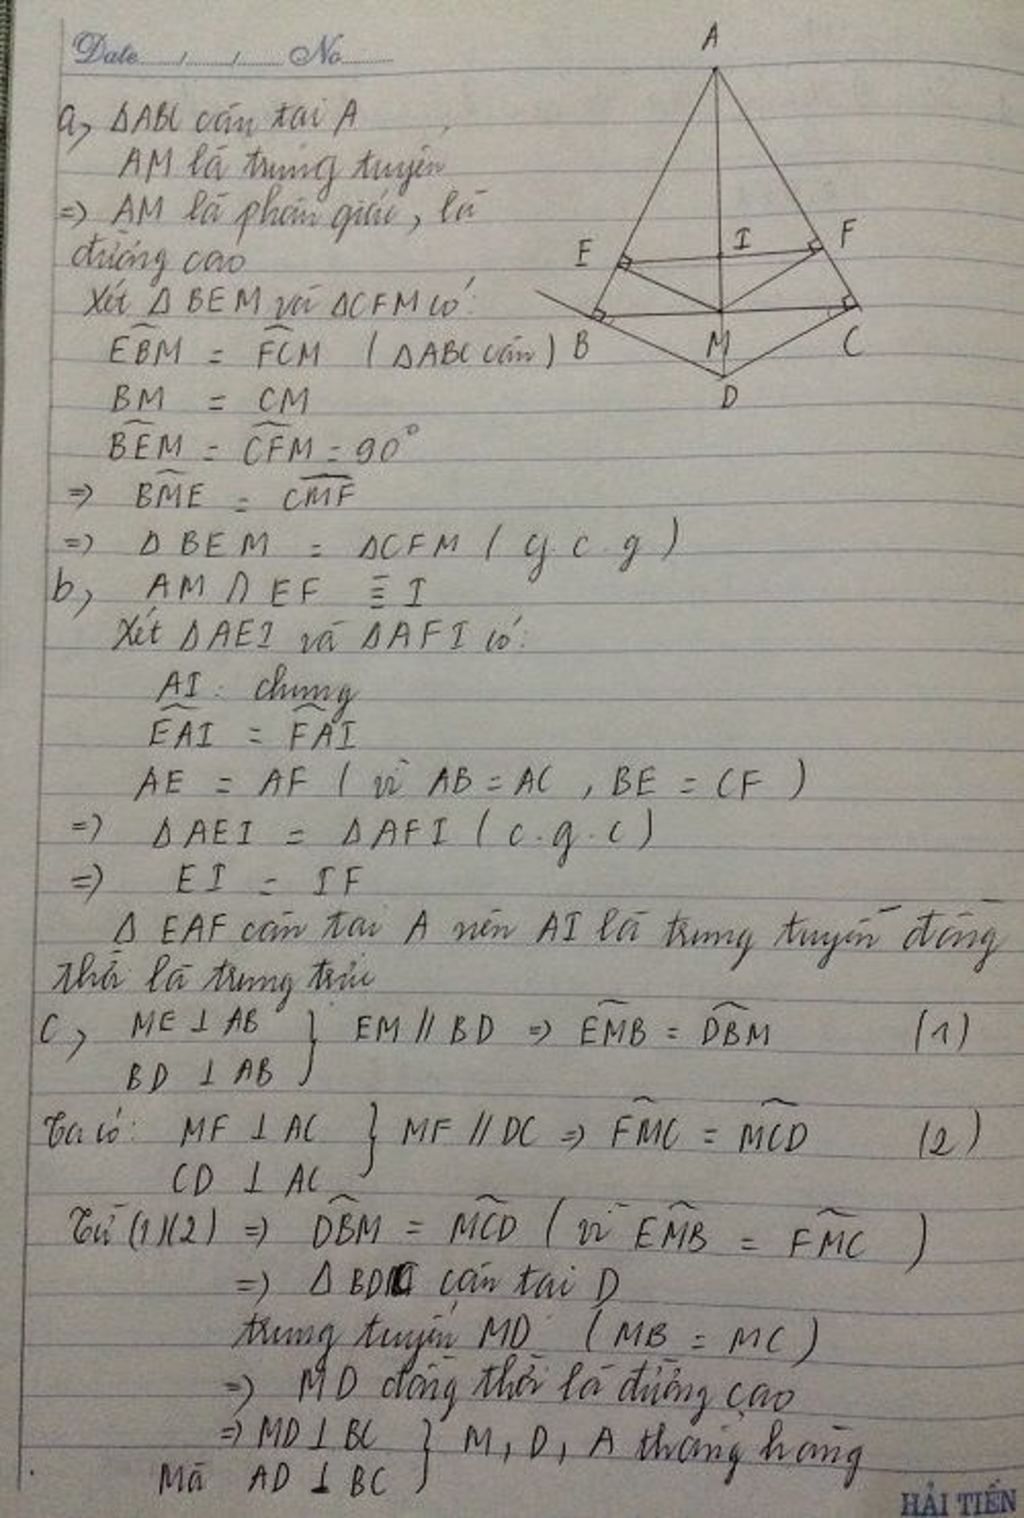 Date / / No
A
a, ΔABC cân tại A
AM là trung tuyến
=> AM là phân giác, là
đường cao
E I F
Xét ΔBEM và ΔCFM có:
EBM = FCM (ΔABC cân)
B M C
D
BM = CM
BEM = CFM = 90°
=> BME = CMF
=> ΔBEM = ΔCFM (g.c.g)
b, AM ∩ EF ≡ I
Xét ΔAEI và ΔAFI có:
AI: chung
EAI = FAI
AE = AF (vì AB = AC, BE = CF)
=> ΔAEI = ΔAFI (c.g.c)
=> EI = IF
ΔEAF cân tại A nên AI là trung tuyến đồng
thời là trung trực
c, ME ⊥ AB } EM // BD => EMB = DBM (1)
BD ⊥ AB
Ta có: MF ⊥ AC } MF // DC => FMC = MCD (2)
CD ⊥ AC
Từ (1)(2) => DBM = MCD (vì EMB = FMC)
=> ΔBDC cân tại D
trung tuyến MD (MB = MC)
=> MD đồng thời là đường cao
=> MD ⊥ BC } M, D, A thẳng hàng
Mà AD ⊥ BC
HẢI TIẾN